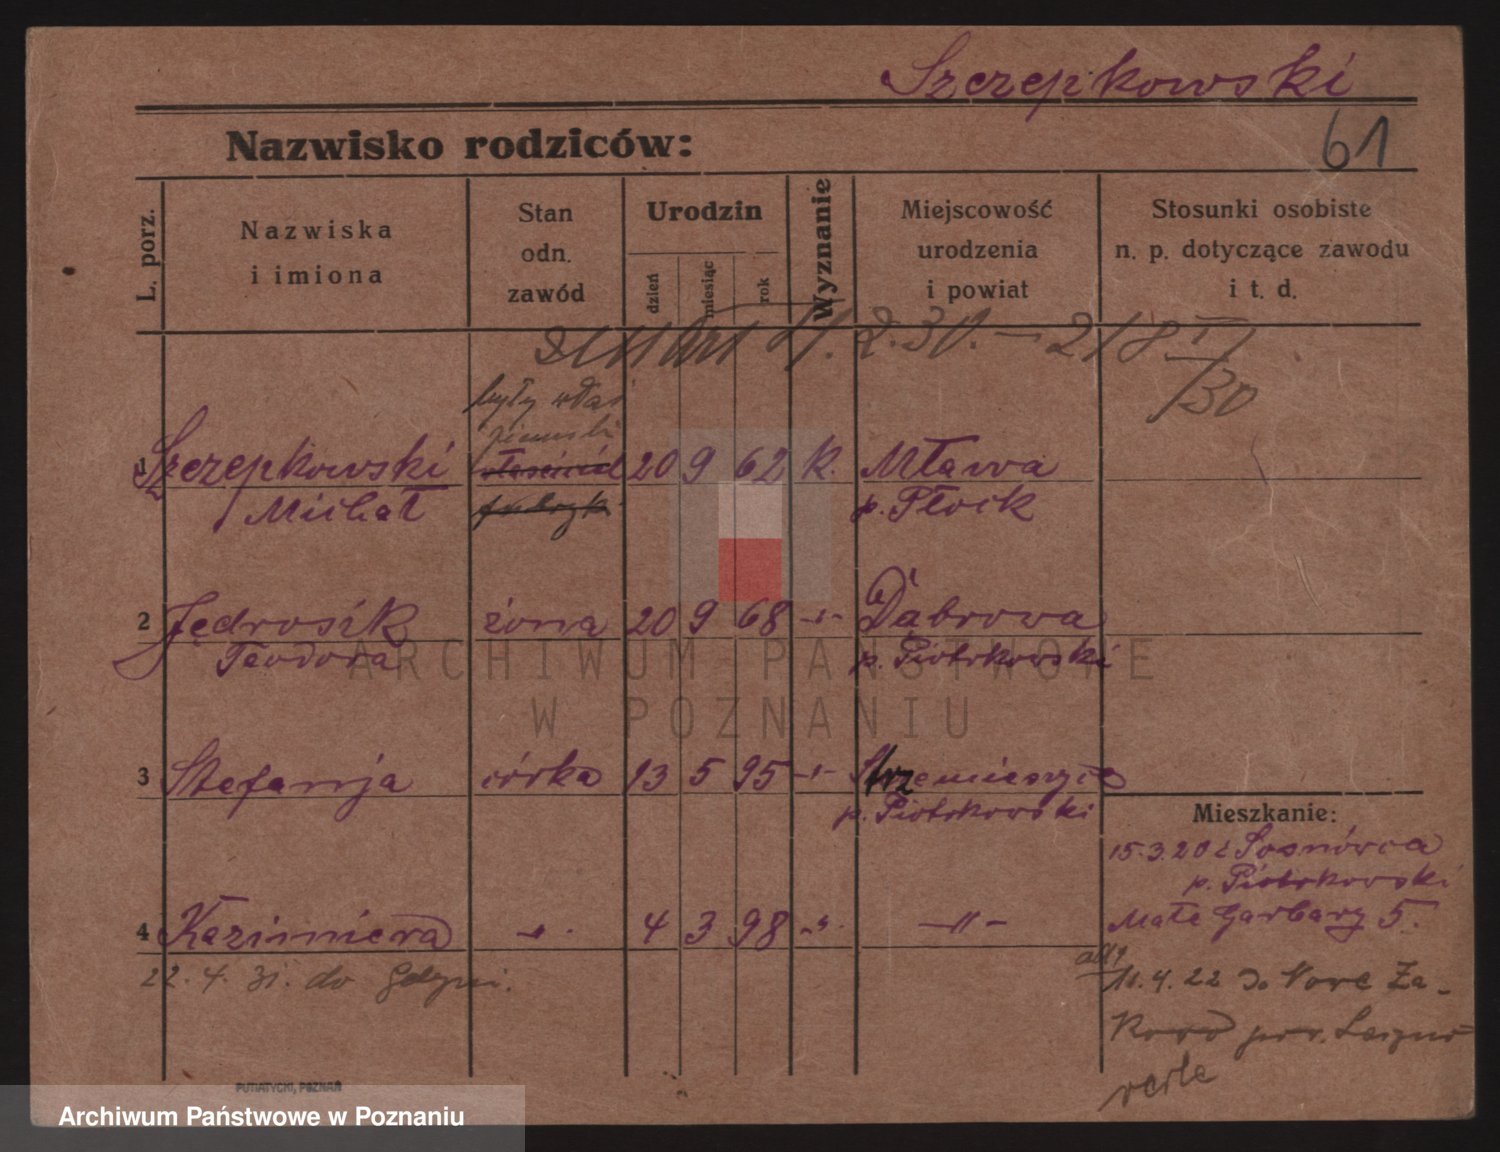 Szczepkowski
61
Nazwisko rodziców:
L. porz.
Nazwiska
i imiona
Stan
odn.
zawód
Urodzin
dzień
miesiąc
rok
Wyznanie
Miejscowość
urodzenia
i powiat
Stosunki osobiste
n. p. dotyczące zawodu
i t. d.
2.30. — 218
/30
były właś
ziemski
1 Szczepkowski 20 9 62 k. Mława
Michał p. Płock
2 Jędrosik żona 20 9 68 -"- Dąbrowa
Teodora p. Piotrkowski
3 Stefanja córka 13 5 95 -"- Strzemieszyce
p. Piotrkowski
Mieszkanie:
15.3.20 z Sosnówca
p. Piotrkowski
Małe Garbary 5.
4 Kazimiera -"- 4 3 98 -"- -"-
22.4.31. do Gdyni.
11.4.22 do Nowe Za-
kowo pow.
ARCHIWUM PAŃSTWOWE
W POZNANIU
PUTIATYCKI, POZNAŃ
Archiwum Państwowe w Poznaniu